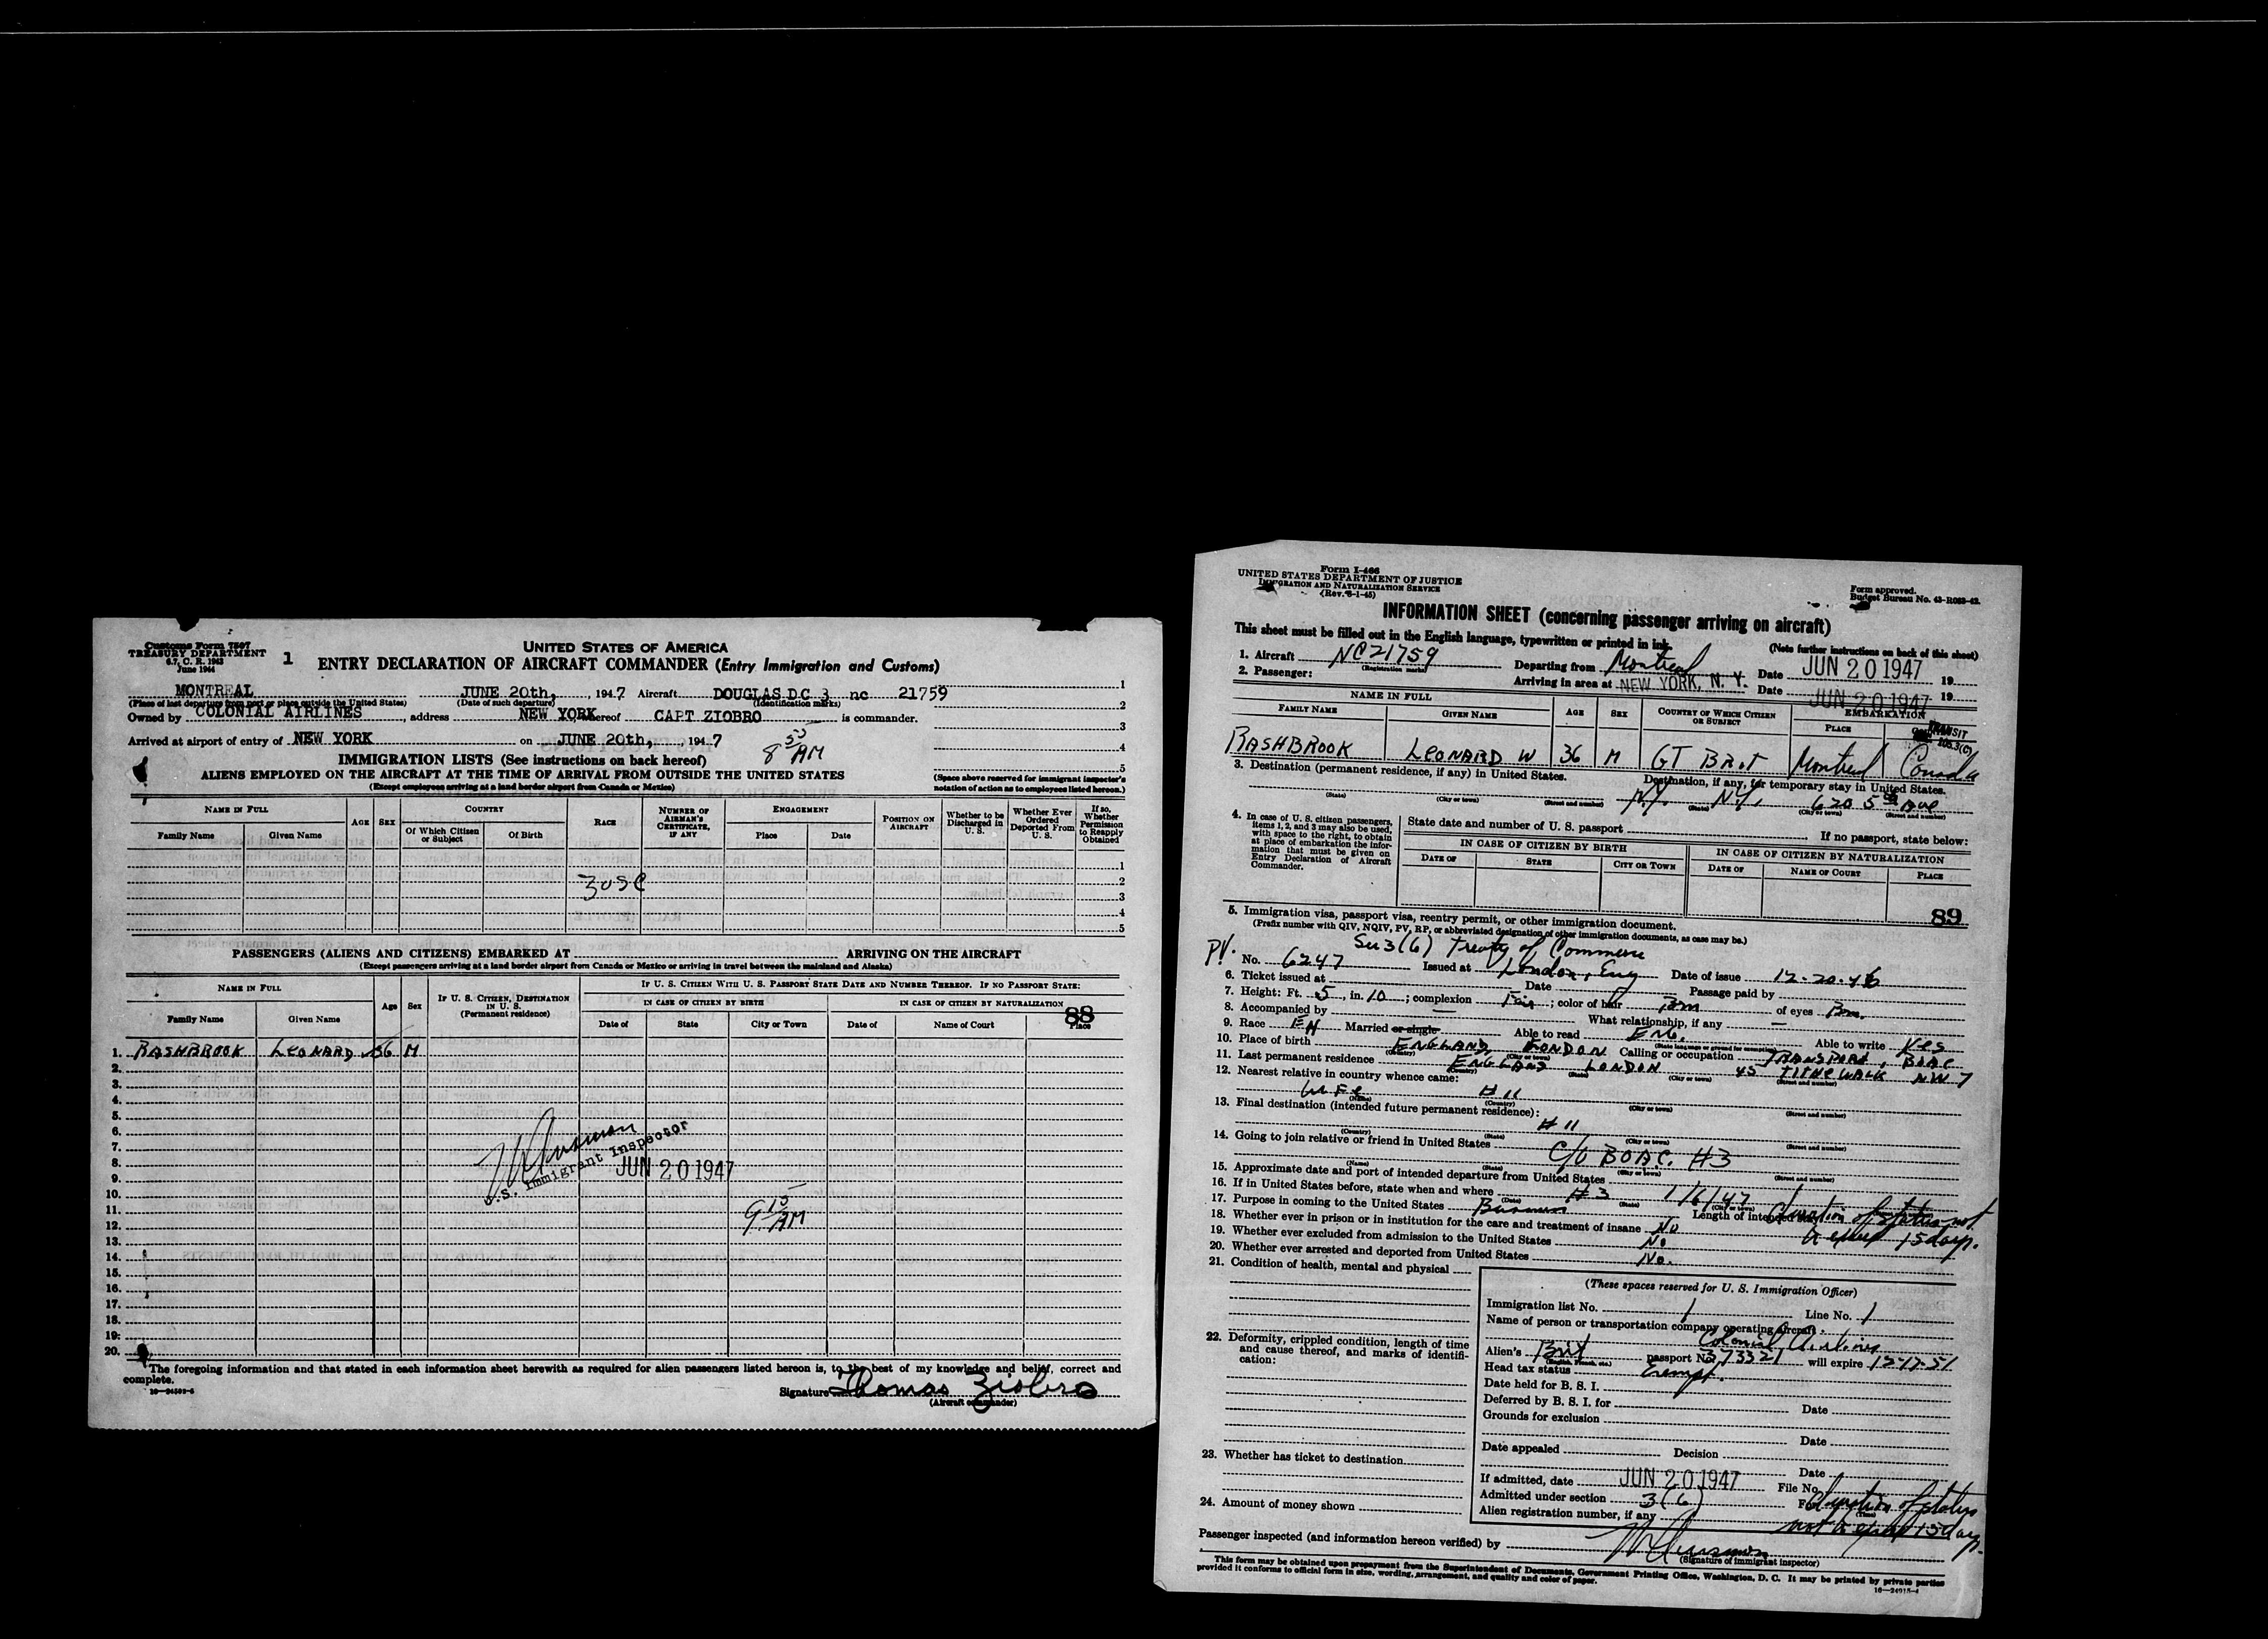 Customs Form 7507
TREASURY DEPARTMENT
6.7, C. R. 1943
June 1944
1
UNITED STATES OF AMERICA
ENTRY DECLARATION OF AIRCRAFT COMMANDER (Entry Immigration and Customs)
MONTREAL JUNE 20th, , 1947 Aircraft DOUGLAS DC 3 nc 21759
(Place of last departure from port or place outside the United States) (Date of such departure) (Identification marks)
Owned by COLONIAL AIRLINES , address NEW YORK whereof CAPT ZIOBRO is commander.
Arrived at airport of entry of NEW YORK on JUNE 20th, , 1947
8 50 AM
IMMIGRATION LISTS (See instructions on back hereof)
ALIENS EMPLOYED ON THE AIRCRAFT AT THE TIME OF ARRIVAL FROM OUTSIDE THE UNITED STATES
(Except employees arriving at a land border airport from Canada or Mexico)
1
2
3
4
5
(Space above reserved for immigrant inspector's notation of action as to employees listed hereon.)
NAME IN FULL AGE SEX COUNTRY RACE NUMBER OF AIRMAN'S CERTIFICATE, IF ANY ENGAGEMENT POSITION ON AIRCRAFT Whether to be Discharged in U. S. Whether Ever Ordered Deported From U. S. If so, Whether Permission to Reapply Obtained
Family Name Given Name Of Which Citizen or Subject Of Birth Place Date
1
2
3 USC
3
4
5
PASSENGERS (ALIENS AND CITIZENS) EMBARKED AT ARRIVING ON THE AIRCRAFT
(Except passengers arriving at a land border airport from Canada or Mexico or arriving in travel between the mainland and Alaska)
NAME IN FULL Age Sex IF U. S. CITIZEN, DESTINATION IN U. S. (Permanent residence) IF U. S. CITIZEN WITH U. S. PASSPORT STATE DATE AND NUMBER THEREOF. IF NO PASSPORT STATE:
IN CASE OF CITIZEN BY BIRTH IN CASE OF CITIZEN BY NATURALIZATION
88
Family Name Given Name Date of State City or Town Date of Name of Court Place
1. RASHBROOK LEONARD 36 M
2.
3.
4.
5.
6.
7.
8.
9.
10.
11.
12.
13.
14.
15.
16.
17.
18.
19.
20.
U.S. Immigrant Inspector
JUN 20 1947
9 15 AM
The foregoing information and that stated in each information sheet herewith as required for alien passengers listed hereon is, to the best of my knowledge and belief, correct and
complete.
Signature Thomas Ziobro
(Aircraft commander)
Form I-466
UNITED STATES DEPARTMENT OF JUSTICE
IMMIGRATION AND NATURALIZATION SERVICE
Form approved.
Budget Bureau No. 43-R083-42.
INFORMATION SHEET (concerning passenger arriving on aircraft)
This sheet must be filled out in the English language, typewritten or printed in ink.
(Note further instructions on back of this sheet)
1. Aircraft NC21759 Departing from Montreal Date JUN 20 1947 19
(Registration marks)
2. Passenger: Arriving in area at NEW YORK, N. Y. Date JUN 20 1947 19
NAME IN FULL AGE SEX COUNTRY OF WHICH CITIZEN OR SUBJECT EMBARKATION
FAMILY NAME GIVEN NAME PLACE
TRANSIT
RASHBROOK LEONARD W 36 M GT BRIT Montreal Canada
3. Destination (permanent residence, if any) in United States. Destination, if any, for temporary stay in United States.
N.Y. N.Y. 620 5th Ave
(State) (City or town) (Street and number) (State) (City or town) (Street and number)
4. In case of U. S. citizen passengers, items 1, 2, and 3 may also be used, with space to the right, to obtain at place of embarkation the information that must be given on Entry Declaration of Aircraft Commander.
State date and number of U. S. passport If no passport, state below:
IN CASE OF CITIZEN BY BIRTH IN CASE OF CITIZEN BY NATURALIZATION
DATE OF STATE CITY OR TOWN DATE OF NAME OF COURT PLACE
89
5. Immigration visa, passport visa, reentry permit, or other immigration document.
(Prefix number with QIV, NQIV, PV, RP, or abbreviated designation of other immigration documents, as case may be.)
Sec 3(6) Treaty of Commerce
PV. No. 6247 Issued at London, Eng Date of issue 12-20-46
6. Ticket issued at Date Passage paid by
7. Height: Ft. 5, in. 10; complexion Fair; color of hair Brn of eyes Brn.
8. Accompanied by — What relationship, if any —
9. Race EN Married or single Able to read ENG. Able to write Yes
10. Place of birth ENGLAND, LONDON Calling or occupation TRANSPORT, BOAC
11. Last permanent residence ENGLAND LONDON 45 TITHE WALK NW 7
12. Nearest relative in country whence came:
Wife #11
13. Final destination (intended future permanent residence):
#11
14. Going to join relative or friend in United States
C/O BOAC. #3
15. Approximate date and port of intended departure from United States
16. If in United States before, state when and where #3 1/6/47
17. Purpose in coming to the United States Business Length of intended stay Duration of status not to exceed 15 days.
18. Whether ever in prison or in institution for the care and treatment of insane No
19. Whether ever excluded from admission to the United States No
20. Whether ever arrested and deported from United States No.
21. Condition of health, mental and physical
22. Deformity, crippled condition, length of time and cause thereof, and marks of identification:
23. Whether has ticket to destination
24. Amount of money shown
(These spaces reserved for U. S. Immigration Officer)
Immigration list No. 1 Line No. 1
Name of person or transportation company operating aircraft
Colonial Airlines
Alien's Brit passport No. 373321 will expire 12-17-51
Head tax status Exempt.
Date held for B. S. I.
Deferred by B. S. I. for Date
Grounds for exclusion
Date
Date appealed Decision
Date
If admitted, date JUN 20 1947 File No.
Admitted under section 3(6) For duration of status
Alien registration number, if any not to exceed 15 days.
Passenger inspected (and information hereon verified) by
(Signature of immigrant inspector)
This form may be obtained upon prepayment from the Superintendent of Documents, Government Printing Office, Washington, D. C. It may be printed by private parties
provided it conforms to official form in size, wording, arrangement, and quality and color of paper.